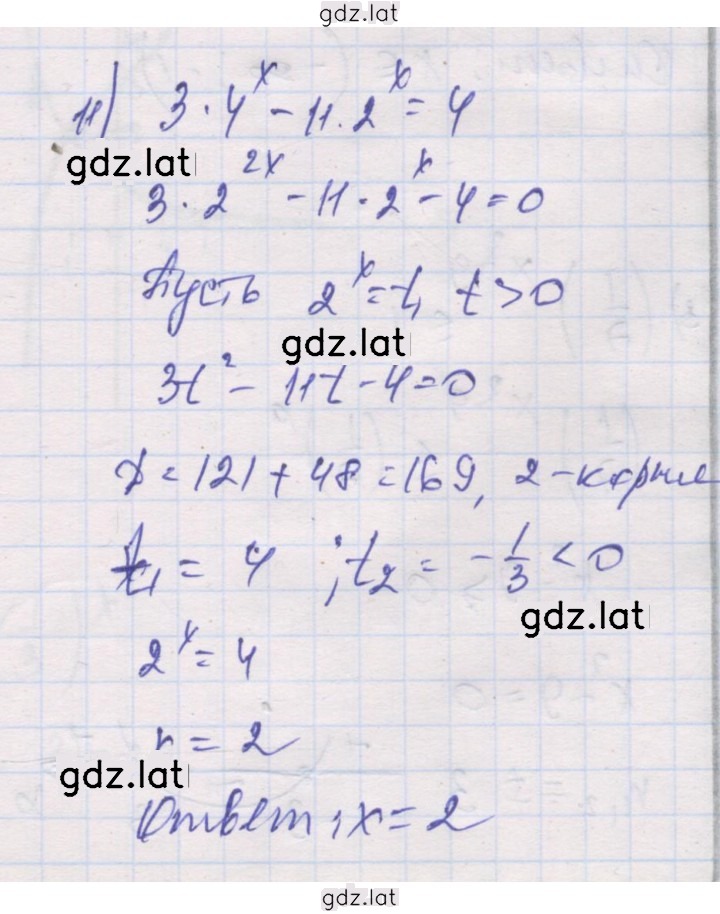 gdz.lat
11) 3 · 4^x - 11 · 2^x = 4
gdz.lat
3 · 2^2x - 11 · 2^x - 4 = 0
Пусть 2^x = t, t > 0
gdz.lat
3t² - 11t - 4 = 0
D = 121 + 48 = 169, 2 - корня
t₁ = 4 ; t₂ = - 1/3 < 0
gdz.lat
2^x = 4
x = 2
gdz.lat
Ответ: x = 2
gdz.lat